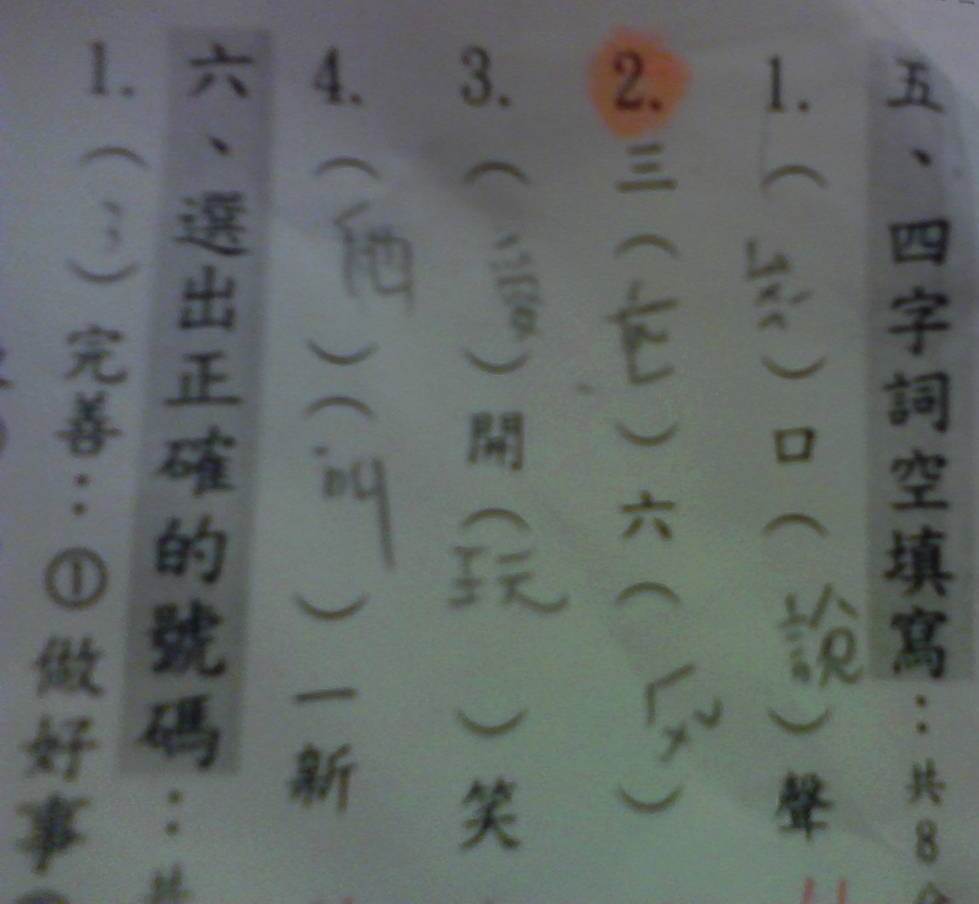 五、四字詞空填寫：共8分
1.（）口（說）聲
2.三（）六（ㄏㄨˇ）
3.（）開（玩）笑
4.（他）（叫）一新
六、選出正確的號碼：共
1.（）完善：①做好事